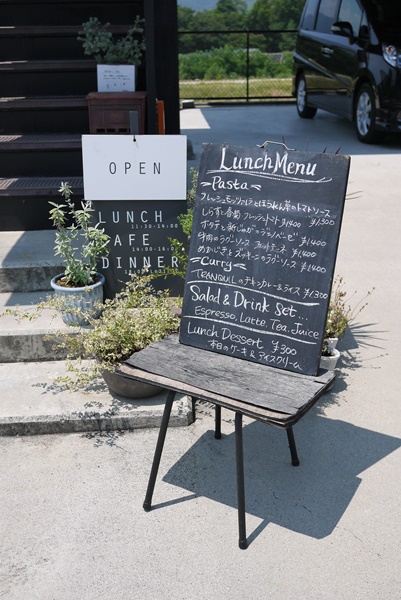 OPEN
LUNCH
11:30-14:00
CAFE
14:00-18:00
DINNER
Lunch Menu
Pasta
フレッシュモッツァレラとほうれん草のトマトソース ¥1,300
しらすと香菊 フレッシュトマト ¥1,400
ホタテと新じゃがのジェノベーゼ ¥1,400
牛肉のラグソース フェットチーネ ¥1,400
ズッキーニのラグソース ¥1,400
Curry
TRANQUILのチキンカレー&ライス ¥1,300
Salad & Drink Set...
Espresso, Latte, Tea, Juice
Lunch Dessert ¥300
本日のケーキ&アイスクリーム